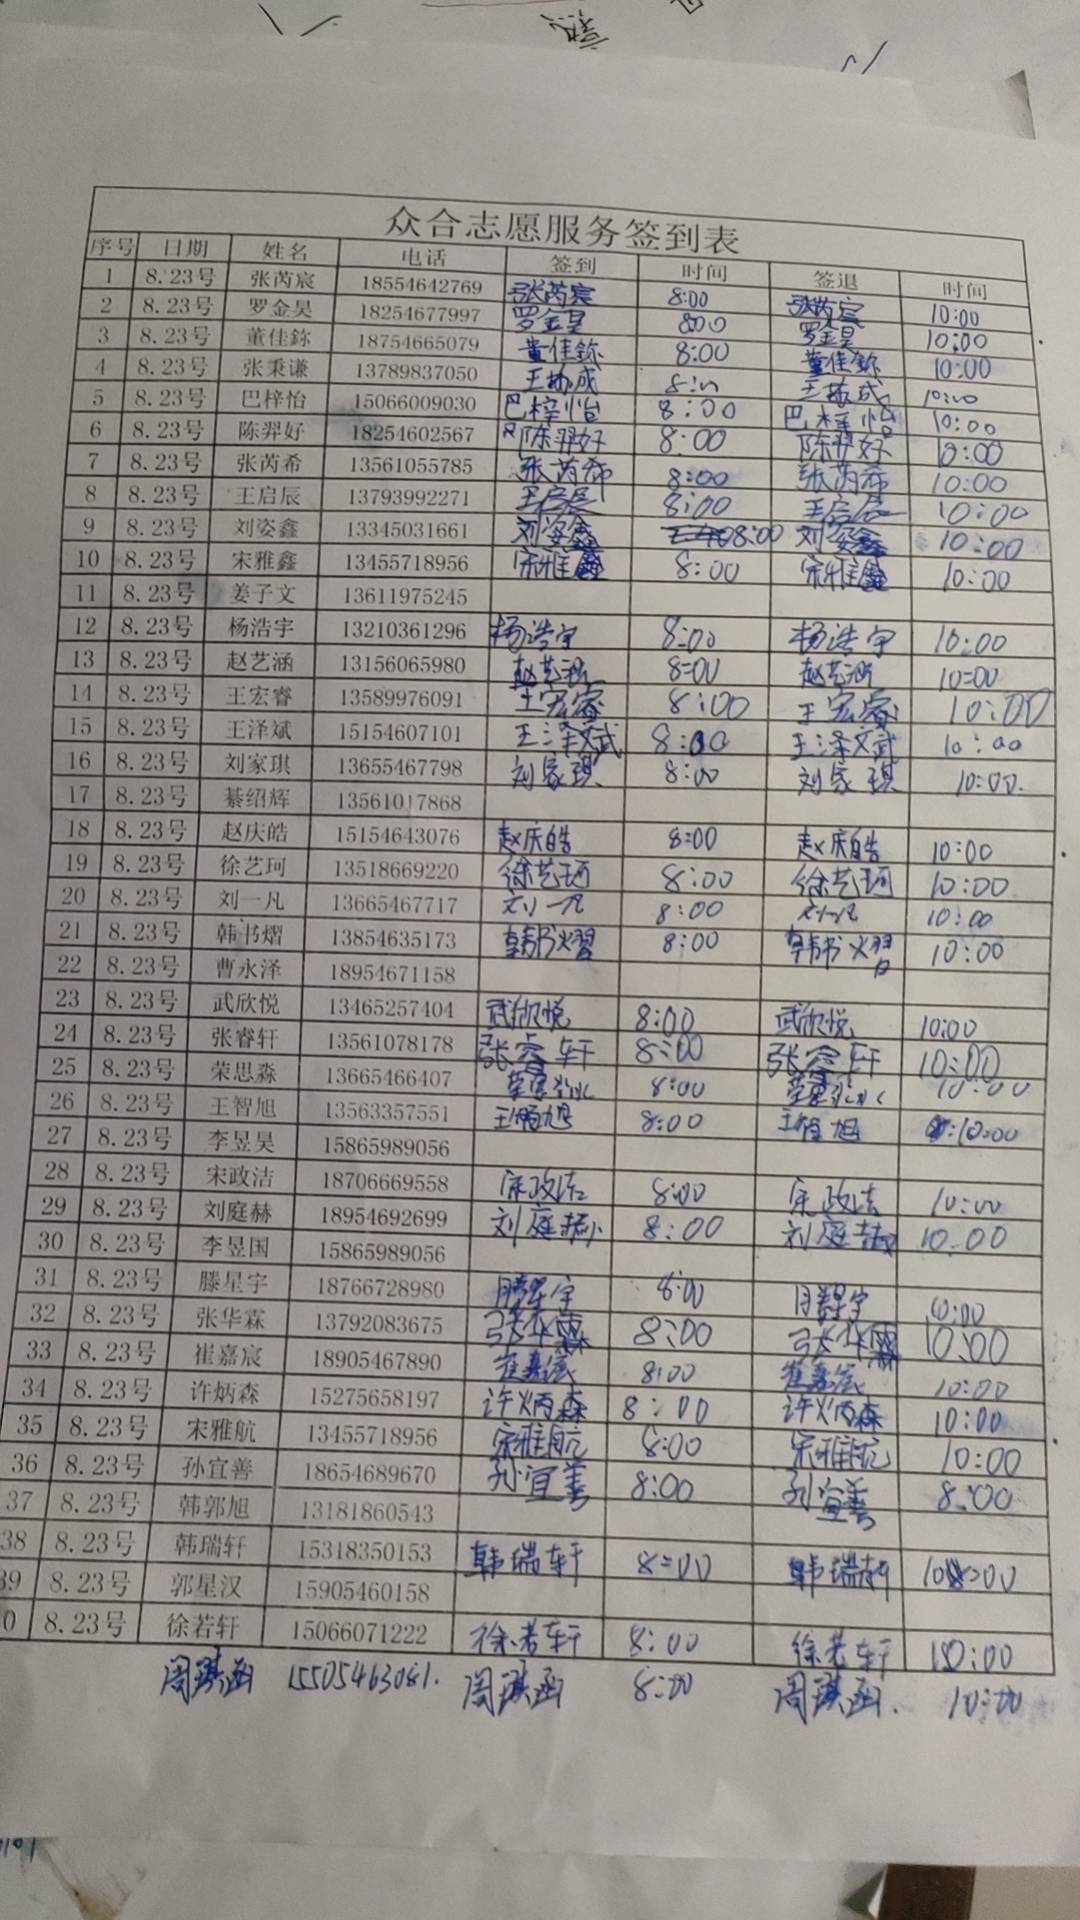 众合志愿服务签到表
序号 日期 姓名 电话 签到 时间 签退 时间
1 8.23号 张芮宸 18554642769 张芮宸 8:00 张芮宸 10:00
2 8.23号 罗金昊 18254677997 罗金昊 800 罗金昊 10:00
3 8.23号 董佳鉨 18754665079 董佳鉨 8:00 董佳鉨 10:00
4 8.23号 张秉谦 13789837050 8:00 10:00
5 8.23号 巴梓怡 15066009030 巴梓怡 8:00 巴梓怡 10:00
6 8.23号 陈羿好 18254602567 陈羿好 8:00 陈羿好 10:00
7 8.23号 张芮希 13561055785 张芮希 8:00 张芮希 10:00
8 8.23号 王启辰 13793992271 王启辰 8:00 王启辰 10:00
9 8.23号 刘姿鑫 13345031661 刘姿鑫 8:00 刘姿鑫 10:00
10 8.23号 宋雅鑫 13455718956 宋雅鑫 8:00 宋雅鑫 10:00
11 8.23号 姜子文 13611975245
12 8.23号 杨浩宇 13210361296 杨浩宇 8:00 杨浩宇 10:00
13 8.23号 赵艺涵 13156065980 赵艺涵 8:00 赵艺涵 10:00
14 8.23号 王宏睿 13589976091 王宏睿 8:00 王宏睿 10:00
15 8.23号 王泽斌 15154607101 王泽斌 8:00 王泽斌 10:00
16 8.23号 刘家琪 13655467798 刘家琪 8:00 刘家琪 10:00.
17 8.23号 綦绍辉 13561017868
18 8.23号 赵庆皓 15154643076 赵庆皓 8:00 赵庆皓 10:00
19 8.23号 徐艺珂 13518669220 徐艺珂 8:00 徐艺珂 10:00
20 8.23号 刘一凡 13665467717 刘一凡 8:00 刘一凡 10:00
21 8.23号 韩书熠 13854635173 韩书熠 8:00 韩书熠 10:00
22 8.23号 曹永泽 18954671158
23 8.23号 武欣悦 13465257404 武欣悦 8:00 武欣悦 10:00
24 8.23号 张睿轩 13561078178 张睿轩 8:00 张睿轩 10:00
25 8.23号 荣思淼 13665466407 荣思淼 8:00 荣思淼 10:00
26 8.23号 王智旭 13563357551 王智旭 8:00 王智旭 10:00
27 8.23号 李昱昊 15865989056
28 8.23号 宋政洁 18706669558 宋政洁 8:00 宋政洁 10:00
29 8.23号 刘庭赫 18954692699 刘庭赫 8:00 刘庭赫 10:00
30 8.23号 李昱国 15865989056
31 8.23号 滕星宇 18766728980 滕星宇 8:00 滕星宇 10:00
32 8.23号 张华霖 13792083675 张华霖 8:00 张华霖 10:00
33 8.23号 崔嘉宸 18905467890 崔嘉宸 8:00 崔嘉宸 10:00
34 8.23号 许炳森 15275658197 许炳森 8:00 许炳森 10:00
35 8.23号 宋雅航 13455718956 宋雅航 8:00 宋雅航 10:00
36 8.23号 孙宜善 18654689670 孙宜善 8:00 孙宜善 8:00
37 8.23号 韩郭旭 13181860543
38 8.23号 韩瑞轩 15318350153 韩瑞轩 8:00 韩瑞轩 10:00
39 8.23号 郭星汉 15905460158
0 8.23号 徐若轩 15066071222 徐若轩 8:00 徐若轩 10:00
周琪函 15505463081. 周琪函 8:00 周琪函. 10:00